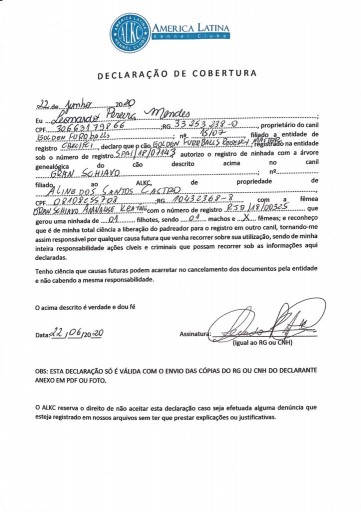 AMERICA LATINA
ALKC
AMERICA LATINA
Kennel Clube
DECLARAÇÃO DE COBERTURA
22 de Junho 2020
Eu Leonardo Pereira Mendes
CPF 30663179866 RG 33 253 238-0, proprietário do canil
GOLDEN FURBALLS nº 15/07, filiado a entidade de
registro CBKC/FCI, declaro que o cão GOLDEN FURBALLS registrado na entidade
sob o número de registro autorizo o registro de ninhada com a árvore
genealógica do cão descrito acima no canil
GRAN SCHIAVO nº
filiado a ALKC de propriedade de
ALINE DOS SANTOS CASTRO
CPF RG 10432368-8 com a fêmea
com o número de registro RJB/18/00325 que
gerou uma ninhada de 01 filhotes, sendo 01 machos e X fêmeas; e reconheço
que é de minha total ciência a liberação do padreador para o registro em outro canil, tornando-me
assim responsável por qualquer causa futura que venha recorrer sobre sua utilização, sendo de minha
inteira responsabilidade ações cíveis e criminais que possam recorrer sob as informações aqui
declaradas.
Tenho ciência que causas futuras podem acarretar no cancelamento dos documentos pela entidade
e não cabendo a mesma responsabilidade.
O acima descrito é verdade e dou fé
Data: 22/06/2020 Assinatura:
(igual ao RG ou CNH)
OBS: ESTA DECLARAÇÃO SÓ É VÁLIDA COM O ENVIO DAS CÓPIAS DO RG OU CNH DO DECLARANTE
ANEXO EM PDF OU FOTO.
O ALKC reserva o direito de não aceitar esta declaração caso seja efetuada alguma denúncia que
esteja registrado em nossos arquivos sem ter que prestar explicações ou justificativas.